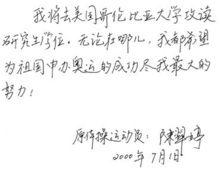 我将去美国哥伦比亚大学攻读
研究生学位。无论在哪儿，我都希望
为祖国申办奥运的成功尽我最大的
努力！
原体操运动员：陈翠婷
2000年7月1日